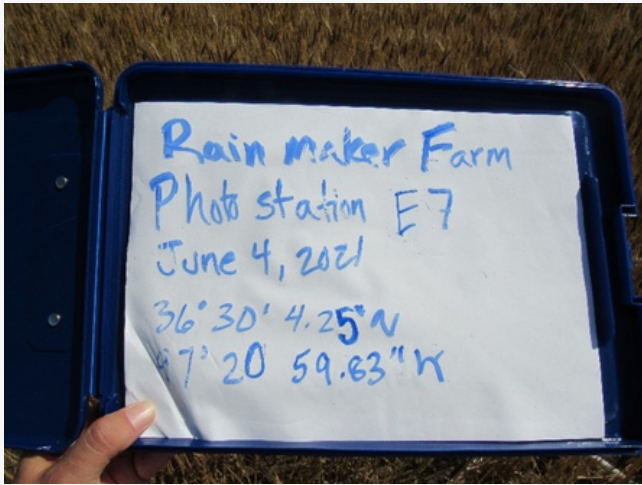 Rain maker Farm
Photo station E7
June 4, 2021
36° 30' 4.25" N
97° 20 59.83" W